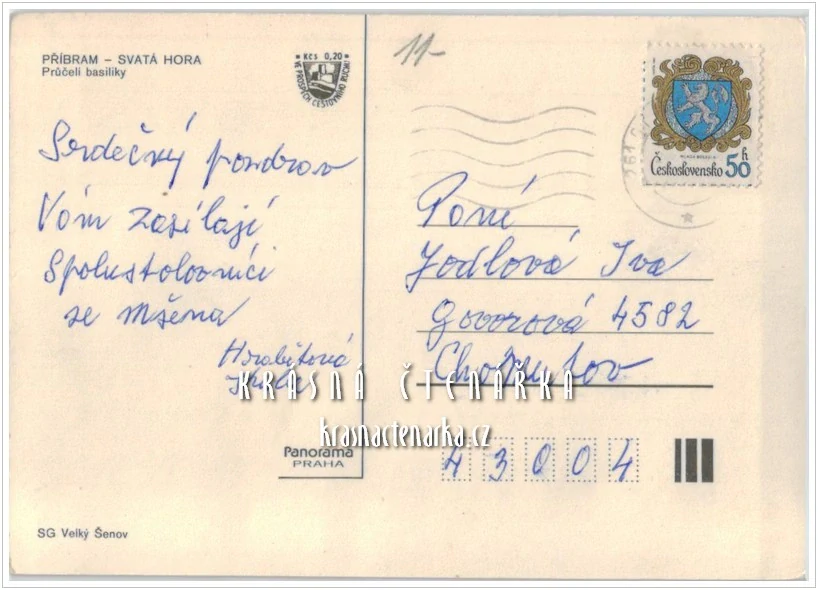 PŘÍBRAM – SVATÁ HORA
Průčelí basiliky
Kčs 0,20
VE PROSPĚCH CESTOVNÍHO RUCHU
11-
Československo 50 h
Srdečný pozdrav
Vám zasílají
Spolustolovníci
ze Mšena
Hrabětová
Paní
Jodlová Iva
Govorová 4582
Chomutov
KRÁSNÁ ČTENÁŘKA
krasnactenarka.cz
43004
Panorama
PRAHA
SG Velký Šenov